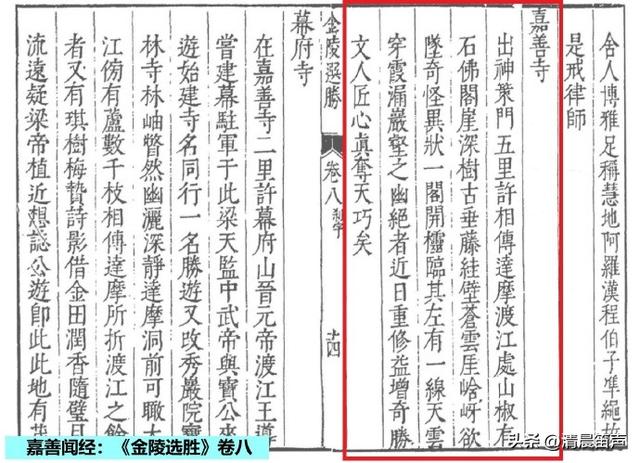 舍人博雅足稱慧地阿羅漢程伯子準繩故
是戒律師
嘉善寺
出神策門五里許相傳達摩渡江處山椒有
石佛閣崖深樹古垂藤絓壁蒼雲厓岈欲
墜奇怪異狀一閣開欞臨其左有一線天雲
穿霞漏巖壑之幽絕者近日重修益增奇勝
文人匠心眞奪天巧矣
金陵選勝 卷八 十四
幕府寺
在嘉善寺二里許幕府山晉元帝渡江王導
嘗建幕駐軍于此梁天監中武帝與寶公來
遊始建寺名同行一名勝遊又改秀巖院寶
林寺林岫瞥然幽灑深靜達摩洞前可瞰大
江傍有蘆數千枝相傳達摩所折渡江之餘
者又有琪樹梅贊詩影借金田潤香隨璧月
流遠疑梁帝植近想誌公遊卽此此地有
嘉善闻经：《金陵选胜》卷八
头条 @清晨笛声